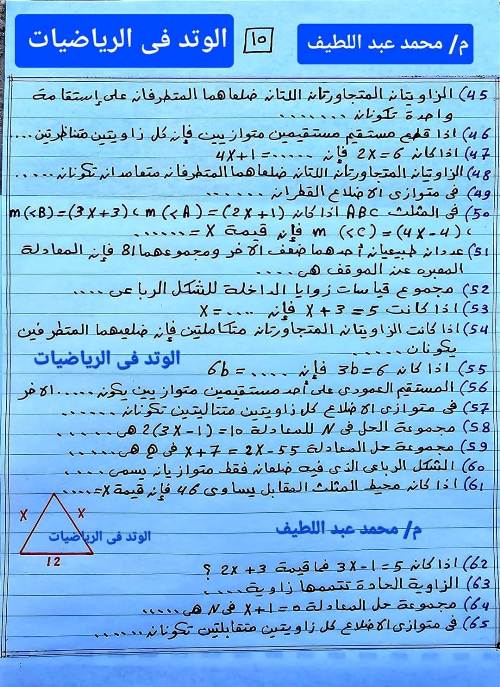 الوتد فى الرياضيات
١٥
م/ محمد عبد اللطيف
45) الزاويتان المتجاورتان اللتان ضلعاهما المتطرفان على إستقامة
واحدة تكونان ........
46) اذا قطع مستقيم مستقيمين متوازيين فإن كل زاويتين متناظرتين....
47) اذا كان 2x=6 فإن ...... = 4x+1
48) الزاويتان المتجاورتان اللتان ضلعاهما المتطرفان متعامدان تكونان.....
49) فى متوازى الاضلاع القطران ......
50) فى المثلث ABC اذا كان m(<A) = (2x+1) ، m(<B)=(3x+3)
، m(<C) = (4x-4) فإن قيمة x = ......
51) عددان طبيعيان أحدهما ضعف الآخر ومجموعهما 81 فإن المعادلة
المعبره عن الموقف هى ....
52) مجموع قياسات زوايا الداخلة للشكل الرباعى ....
53) اذا كانت x+3=5 فإن x=.....
54) اذا كانت الزاويتان المتجاورتان متكاملتين فإن ضلعيهما المتطرفين
يكونان ......
الوتد فى الرياضيات
55) اذا كان 3b=6 فإن .... = 6b
56) المستقيم العمودى على أحد مستقيمين متوازيين يكون ..... الآخر
57) فى متوازى الاضلاع كل زاويتين متتاليتين تكونان ......
58) مجموعة الحل فى N للمعادلة 2(3x-1)=10 هى ......
59) مجموعة حل المعادلة x+7=2x-55 فى Q هى .....
60) الشكل الرباعى الذى فيه ضلعان فقط متوازيان يسمى ....
61) اذا كان محيط المثلث المقابل يساوى 46 فإن قيمة x=.....
x
x
الوتد فى الرياضيات
م/ محمد عبد اللطيف
12
62) اذا كان 3x-1=5 فما قيمة 2x+3 ؟
63) الزاوية الحادة تتممها زاوية ....
64) مجموعة حل المعادلة x+1=0 فى N هى ......
65) فى متوازى الاضلاع كل زاويتين متقابلتين تكونان ......